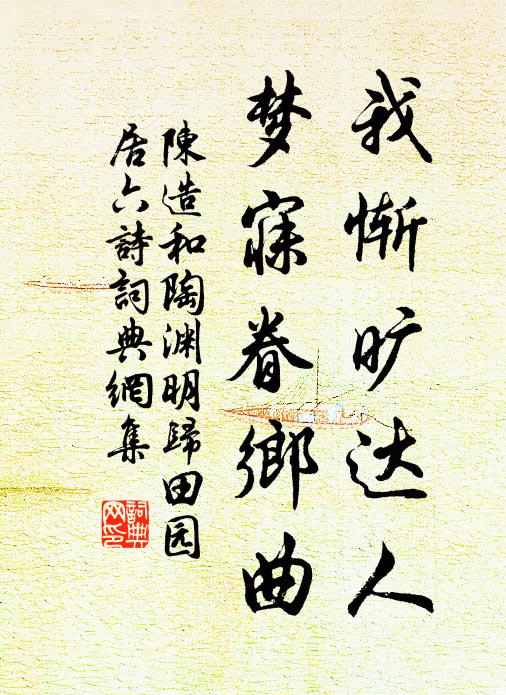 我惭旷达人
梦寐眷鄉曲
陳造和陶淵明歸田园
居六詩詞典網集
詞典
网印